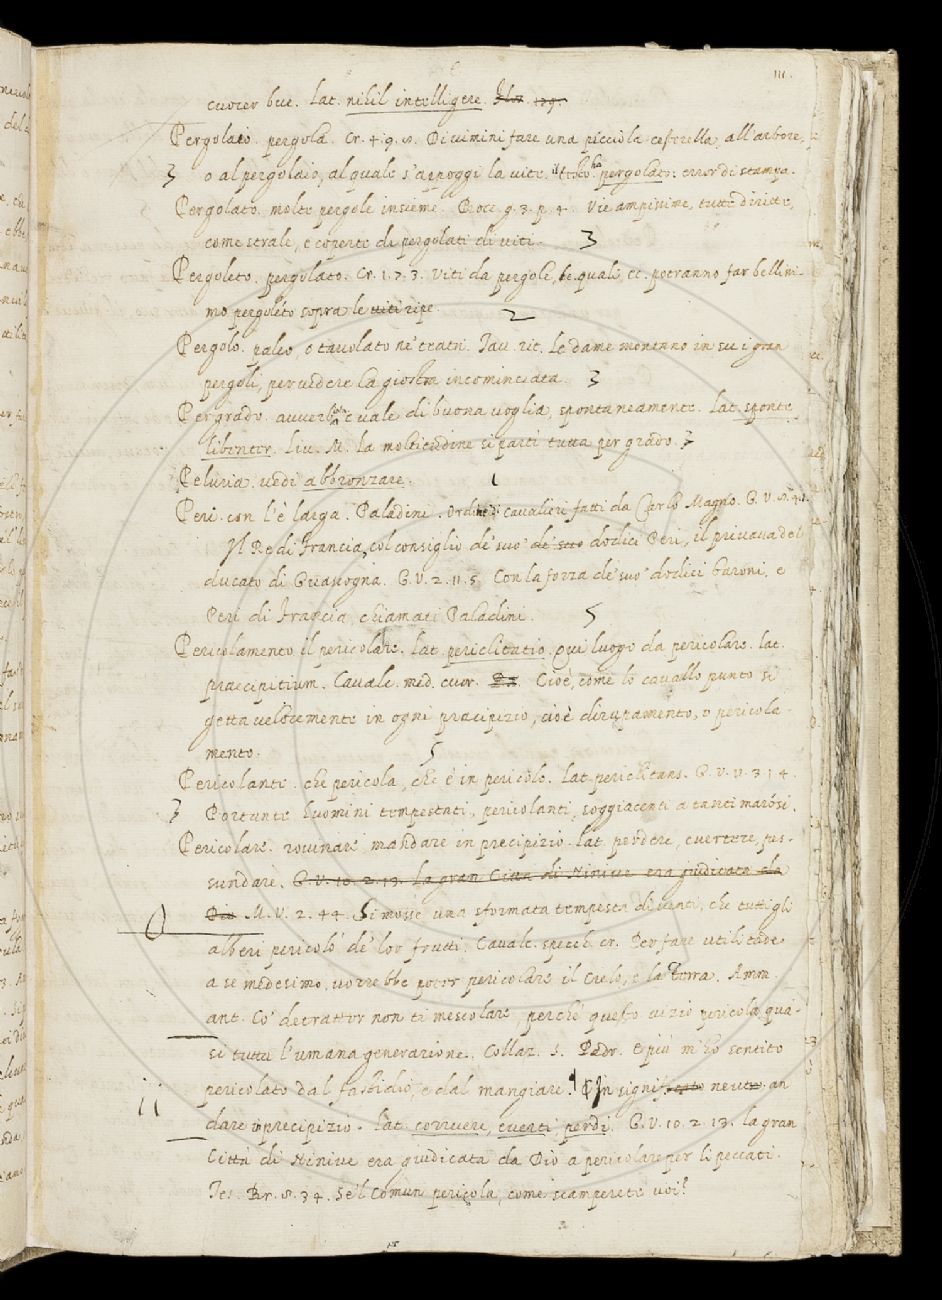 111.
cuocer bue. Lat. nihil intelligere.
Pergolato. pergola. Cr. 4. 9. 8. Di vimini fare una picciola cesterella all'arbore,
3 o al pergolaio, al quale s'appoggi la vite. il testo ha pergolato: error di stampa.
Pergolato. molte pergole insieme. Bocc. g. 3. p. 4. Vie ampissime, tutte diritte,
come strale, e coperte di pergolati di viti. 3
Pergoleto. pergolato. Cr. 1. 7. 3. Viti da pergole, le quali, ec. potranno far bellissi-
mo pergoleto sopra le viti ripe. 2
Pergolo. palco, o tavolato ne' teatri. Tav. rit. Le dame montanno in su i gran
pergoli, per vedere la giostra incominciata. 3
Per grado. avverbial. e vale di buona voglia, spontaneamente. Lat. sponte,
libenter. Liv. M. La moltitudine si partì tutta per grado. 3
Peluria. vedi abbronzare. 1
Peri. con l'è larga. Paladini. Ordine di cavalieri fatti da Carlo Magno. G. V. 8. 4.
Il Re di Francia, col consiglio de' suo' de' suo dodici Peri, il privava del
ducato di Guascogna. G. V. 2. 11. 5. Con la forza de' suo' dodici baroni, e
Peri di Francia, chiamati Paladini. 5
Pericolamento. il pericolare. Lat. periclitatio. Qui luogo da pericolare. lat.
praecipitium. Cavalc. med. cuor. Cioè, come lo cavallo punto si
getta velocemente in ogni precipizio, cioè dirupamento, o pericola-
mento. 5
Pericolante. che pericola, che è in pericolo. Lat. periclitans. G. V. 11. 3. 14.
3 Portunti huomini tempestati, pericolanti, soggiacenti a tanti marosi.
Pericolare. rovinare, mandare in precipizio. Lat. perdere, evertere, pes-
sundare. G. V. 10. 2. 13. La gran Città di Ninive era giudicata da
Dio M. V. 2. 44. Si mosse una sformata tempesta di venti, che tutti gli
alberi pericolò de' lor frutti. Cavalc. specch. cr. Per fare utilitade
a se medesimo, vorrebbe poter pericolare il Cielo, e la terra. Amm.
ant. Co' detrattor non ti mescolare, perchè questo vizio pericola qua-
si tutta l'umana generazione. Collaz. S. Padr. E più m'ho sentito
pericolato dal fastidio, e dal mangiare. In significato neutro. an
11 dare in precipizio. Lat. corruere, everti, perdi. G. V. 10. 2. 13. La gran
Città di Ninive era giudicata da Dio a pericolare per li peccati.
Tes. Br. 8. 34. Se'l Comun pericola, come scamperete voi?